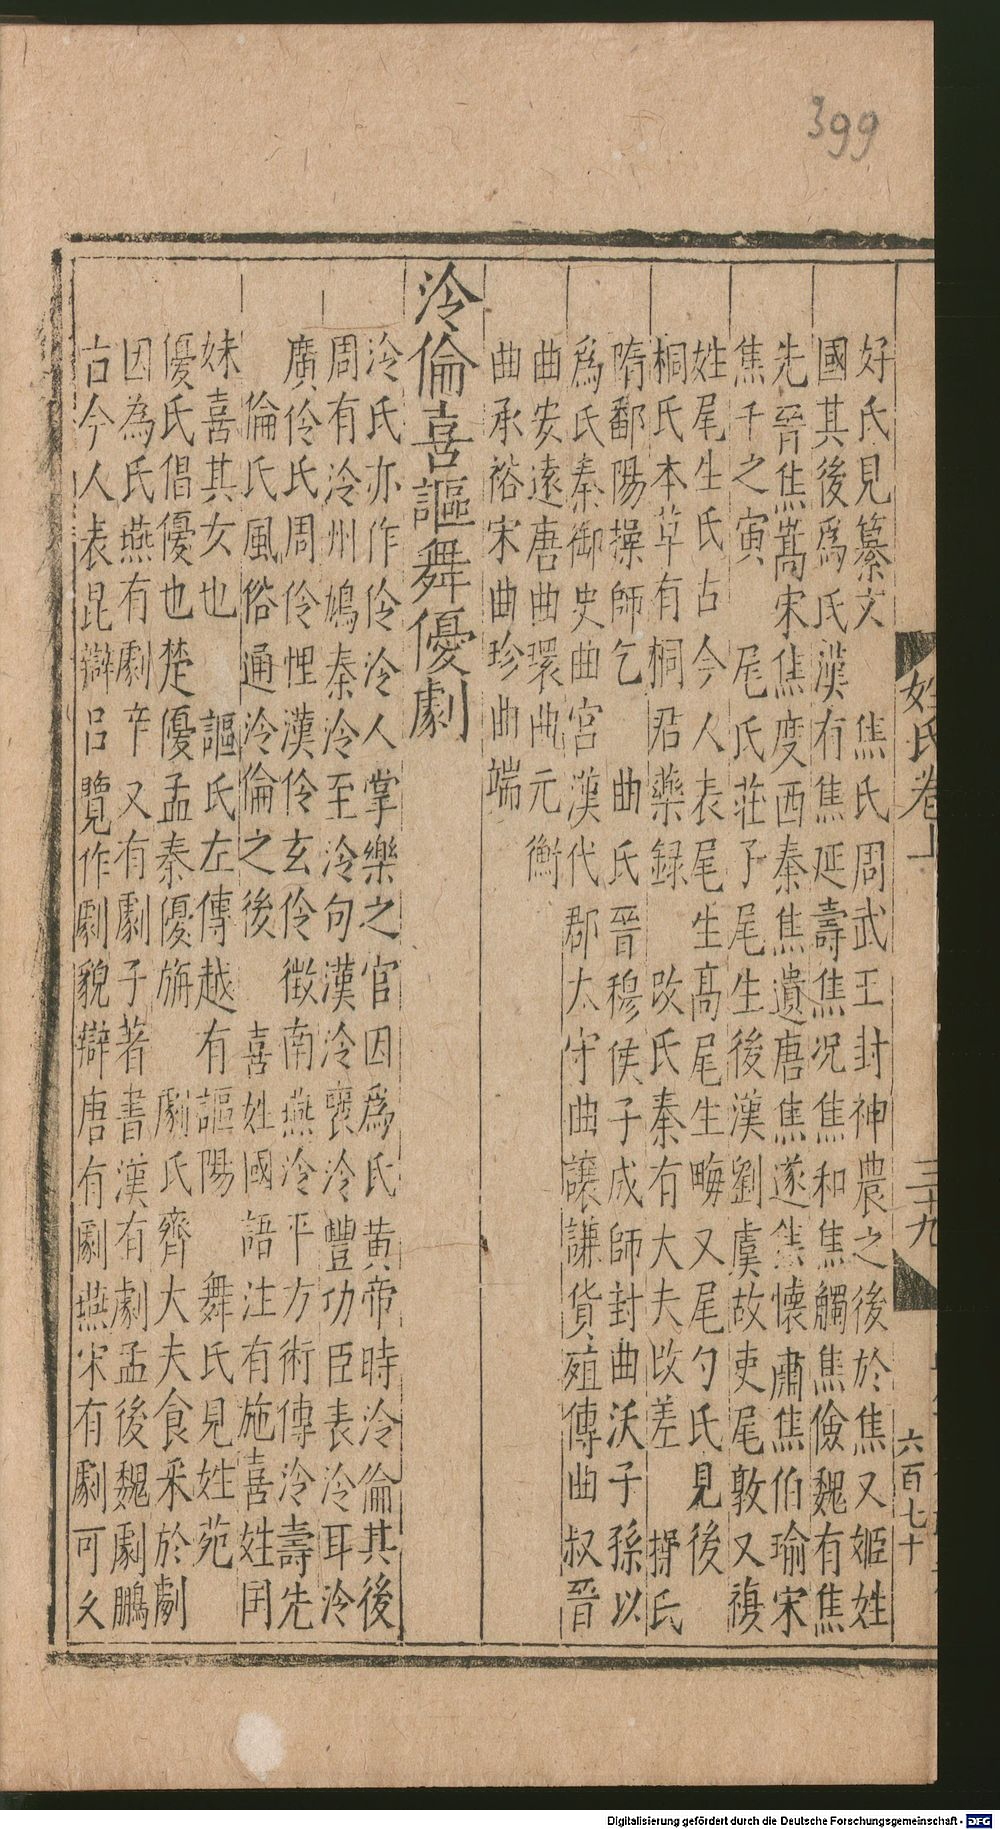 399
姓氏卷上
三十九
六百七十
好氏見纂文　焦氏周武王封神農之後於焦又姬姓
國其後爲氏漢有焦延壽焦况焦和焦觸焦儉魏有焦
先晉焦嵩宋焦度西秦焦遺唐焦遂焦懐肅焦伯瑜宋
焦千之寅　尾氏莊子尾生後漢劉虞故吏尾敦又複
姓尾生氏古今人表尾生高尾生畮又尾勺氏見後
桐氏本草有桐君藥録　改氏秦有大夫改差　操氏
隋鄱陽操師乞　曲氏晉穆侯子成師封曲沃子孫以
爲氏秦御史曲宮漢代郡太守曲謙貨殖傳曲叔晉
曲安遠唐曲環曲元衡
曲承裕宋曲珍曲端
泠倫喜謳舞優劇
泠氏亦作伶泠人掌樂之官因爲氏黄帝時泠倫其後
周有泠州鳩秦泠至泠句漢泠襃泠豐功臣表泠耳泠
廣伶氏周伶悝漢伶玄伶徵南燕泠平方術傳泠壽先
倫氏風俗通泠倫之後　喜姓國語注有施喜姓国
妹喜其女也　謳氏左傳越有謳陽　舞氏見姓苑
優氏倡優也楚優孟秦優旃　劇氏齊大夫食釆於劇
因為氏燕有劇辛又有劇子著書漢有劇孟後魏劇鵬
古今人表昆辯吕覽作劇貌辯唐有劇燕宋有劇可久
Digitalisierung gefördert durch die Deutsche Forschungsgemeinschaft - DFG